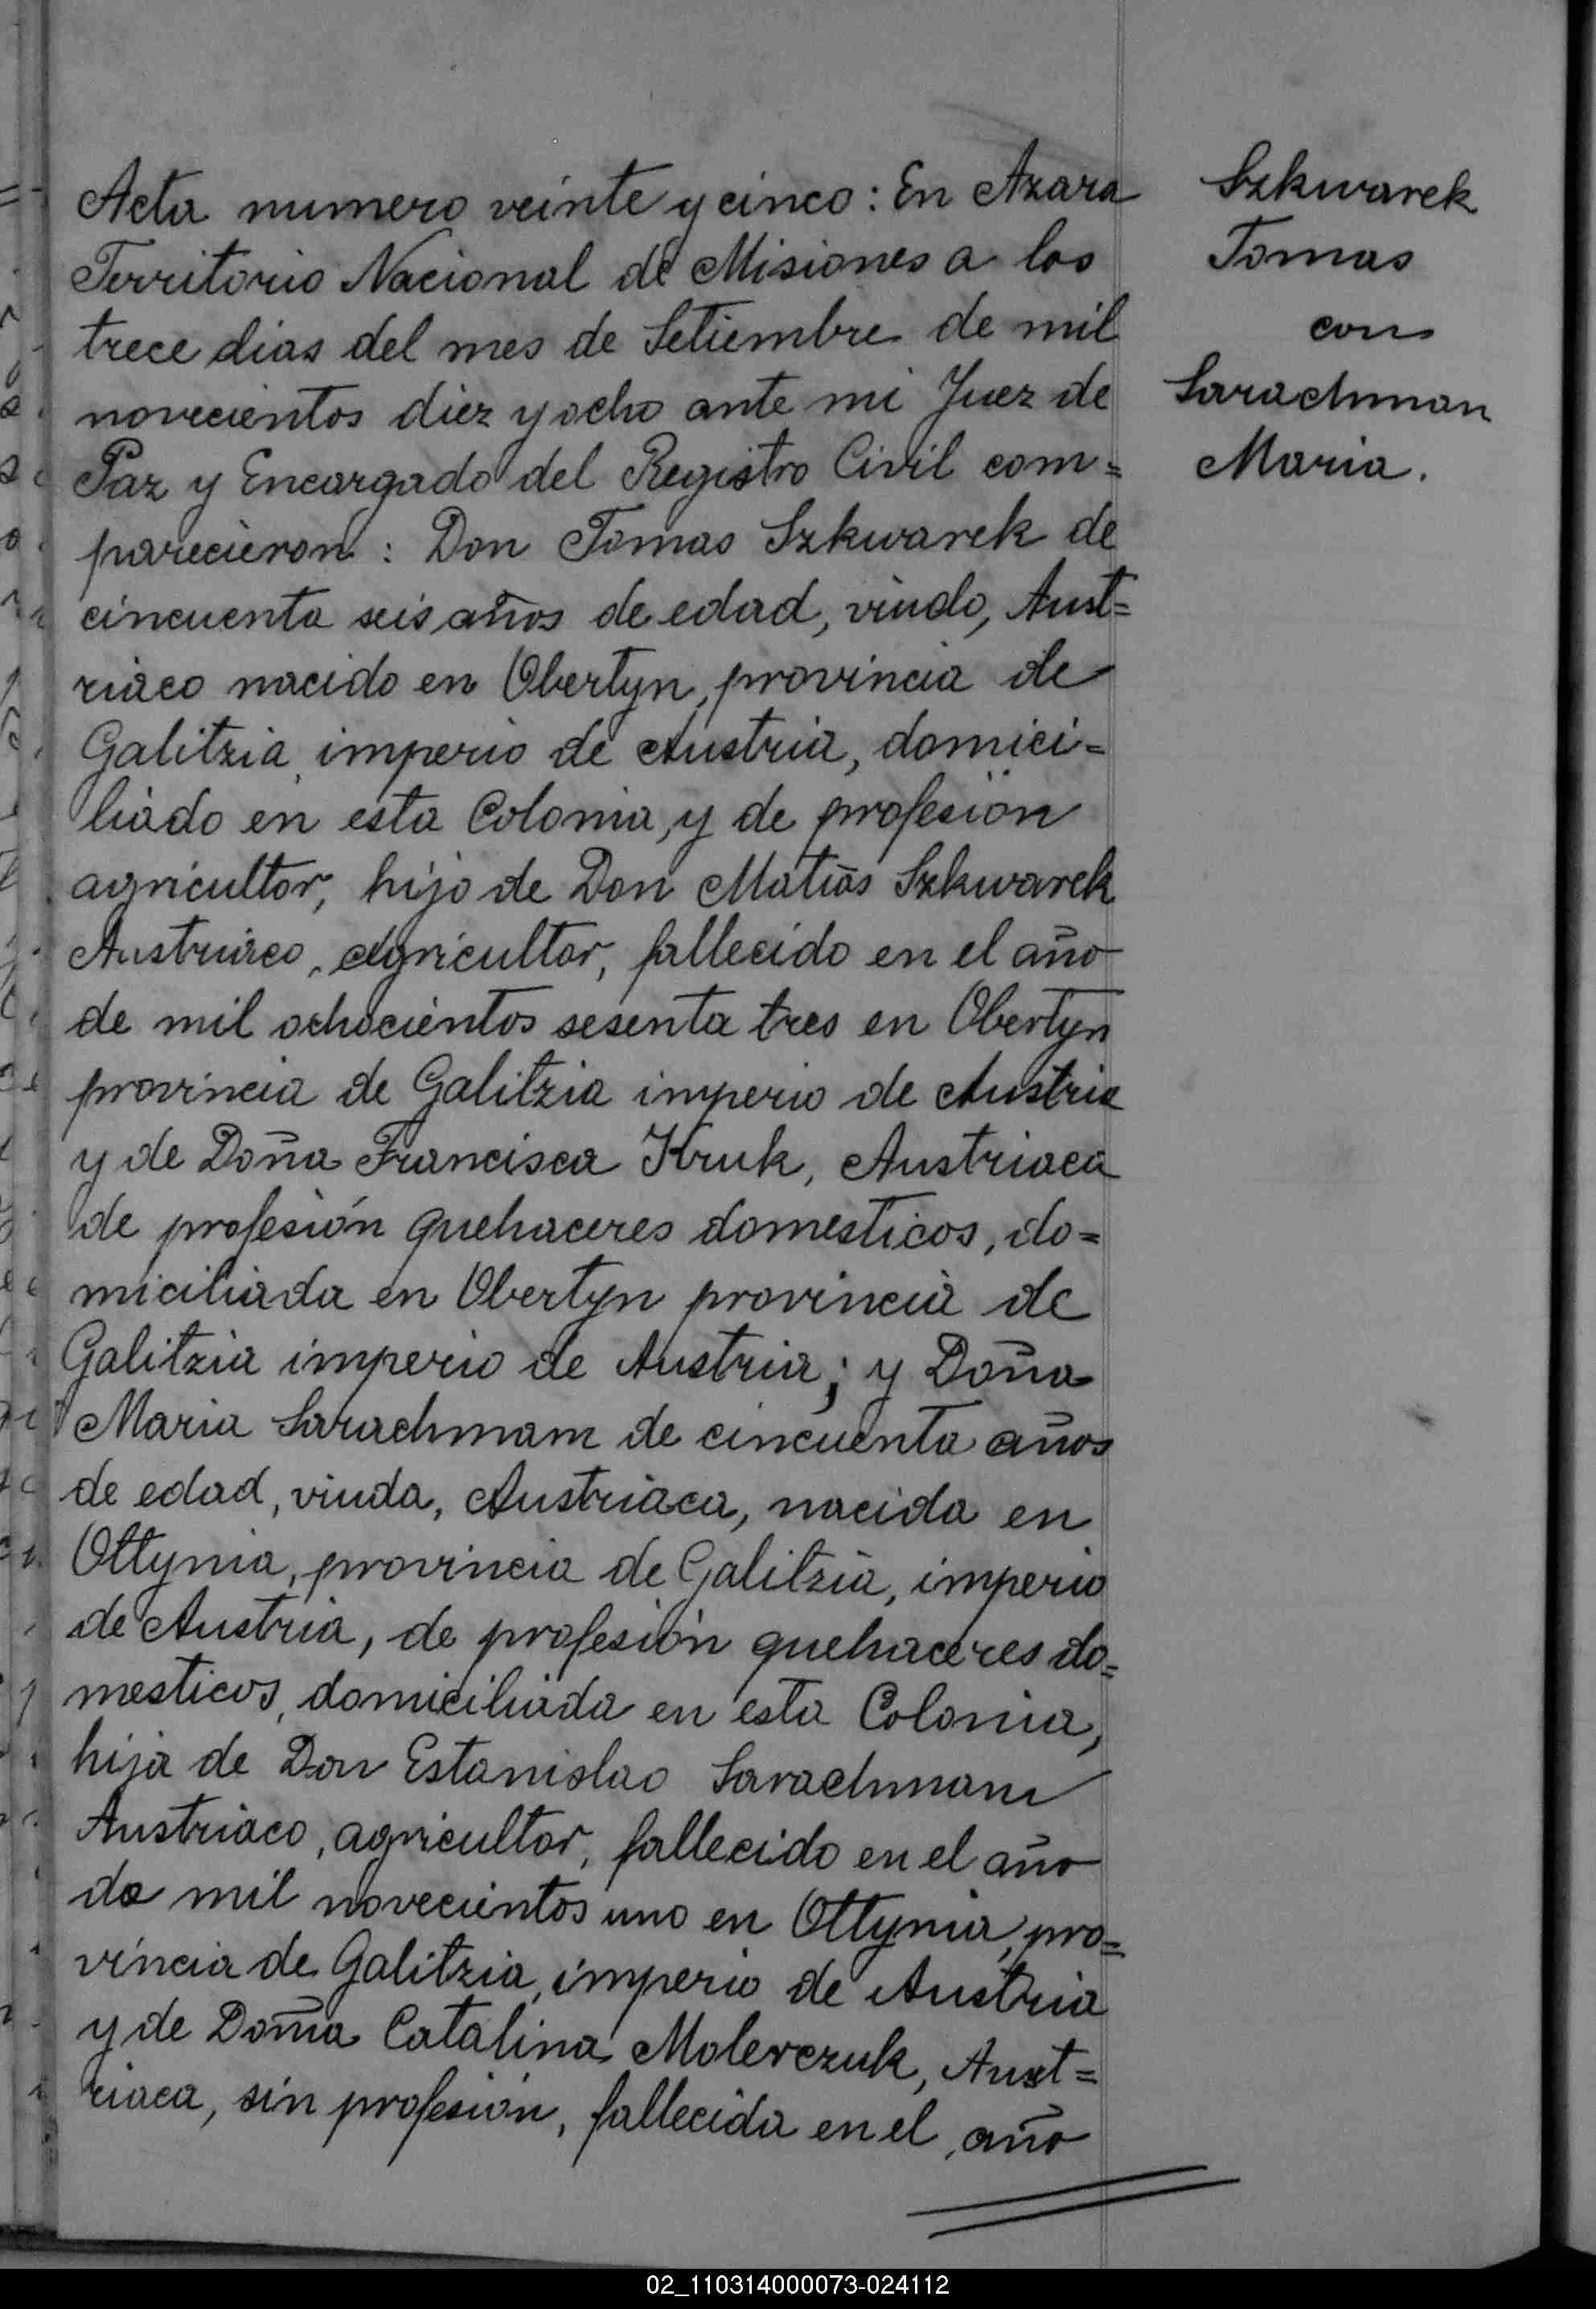 Acta numero veinte y cinco: En Azara
Territorio Nacional de Misiones a los
trece dias del mes de Setiembre de mil
novecientos diez y ocho ante mi Juez de
Paz y Encargado del Registro Civil com=
parecieron: Don Tomas Szkwarek de
cincuenta seis años de edad, viudo, Aust=
riaco nacido en Obertyn, provincia de
Galitzia, imperio de Austria, domici=
liado en esta Colonia, y de profesión
agricultor, hijo de Don Matias Szkwarek
Austriaco, Agricultor, fallecido en el año
de mil ochocientos sesenta tres en Obertyn
provincia de Galitzia imperio de Austria
y de Doña Francisca Kruk, Austriaca
de profesión quehaceres domesticos, do=
miciliada en Obertyn provincia de
Galitzia imperio de Austria; y Doña
Maria Sarachmam de cincuenta años
de edad, viuda, Austriaca, nacida en
Ottynia, provincia de Galitzia, imperio
de Austria, de profesión quehaceres do=
mesticos, domiciliada en esta Colonia,
hija de Don Estanislao Sarachmam
Austriaco, agricultor, fallecido en el año
de mil novecientos uno en Ottynia, pro=
vincia de Galitzia, imperio de Austria
y de Doña Catalina Molerczuk, Aust=
riaca, sin profesión, fallecida en el año
Szkwarek
Tomas
con
Sarachman
Maria.
02_110314000073-024112